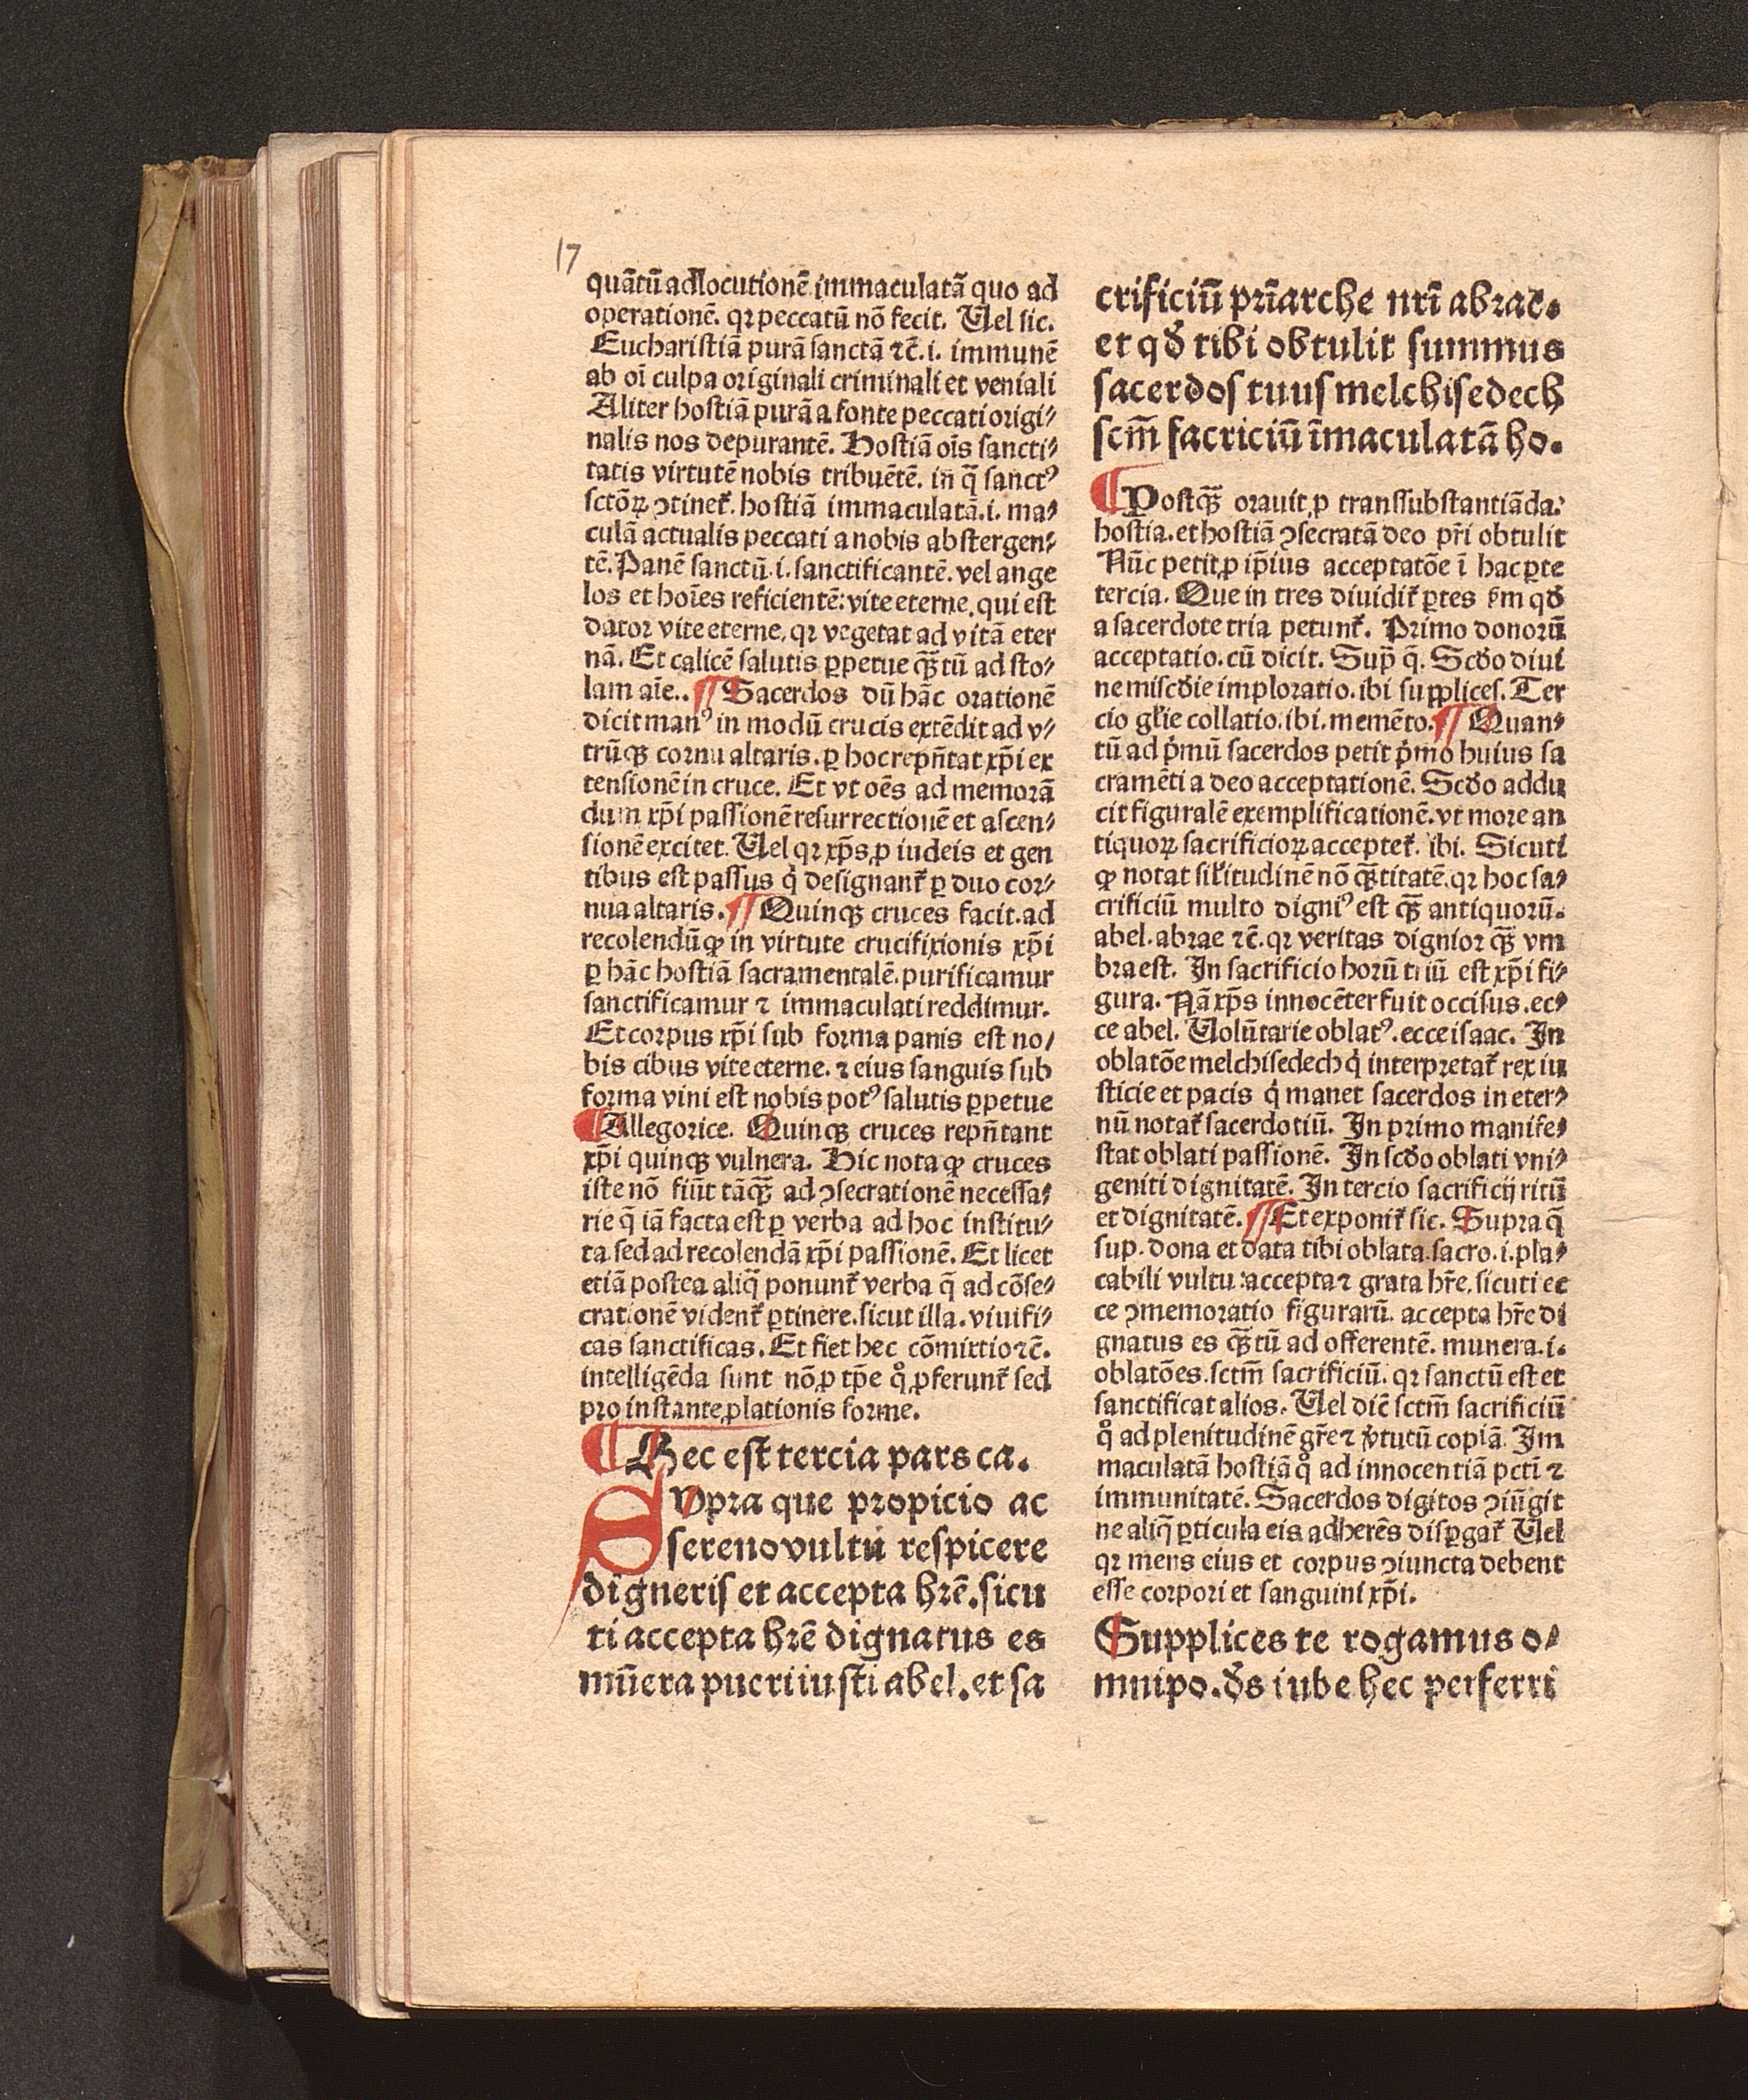 17
quātū adlocutionē immaculatā quo ad
operationē. qꝛ peccatū nō fecit. Uel sic.
Euchariſtiā purā ſanctā ⁊c̄. i. immunē
ab oī culpa originali criminali et veniali
Aliter hoſtiā purā a fonte peccati origi⸗
nalis nos depurantē. Hoſtiā oīs ſancti⸗
tatis virtutē nobis tribuētē. in q̄ ſanctꝰ
ſctōꝝ ↄtinet̄. hoſtiā immaculatā. i. ma⸗
culā actualis peccati a nobis abſtergen⸗
tē. Panē ſanctū. i. ſanctificantē. vel ange
los et hoīes reficientē: vite eterne. qui eſt
dator vite eterne, qꝛ vegetat ad vitā eter
nā. Et calicē ſalutis ꝑpetue qꝫ̄tū ad ſto⸗
lam aīe.. ¶ Sacerdos dū hāc orationē
dicit manꝰ in modū crucis extēdit ad v⸗
trūqꝫ cornu altaris. ꝑ hoc repn̄tat xp̄i ex
tenſionē in cruce. Et vt oēs ad memorā
dum xp̄i paſſionē reſurrectionē et aſcen⸗
ſionē excitet. Uel qꝛ xp̄s ꝓ iudeis et gen
tibus eſt paſſus q̇ deſignant̄ ꝑ duo cor⸗
nua altaris. ¶ Quinqꝫ cruces facit. ad
recolendū ꝙ in virtute crucifixionis xp̄i
ꝑ hāc hoſtiā ſacramentalē. purificamur
ſanctificamur ⁊ immaculati reddimur.
Et corpus xp̄i ſub forma panis eſt no/
bis cibus vite eterne. ⁊ eius ſanguis ſub
forma vini eſt nobis potꝰ ſalutis ꝑpetue
¶ Allegorice. Quinqꝫ cruces repn̄tant
xp̄i quinqꝫ vulnera. Hic nota ꝙ cruces
iſte nō fiūt tāqꝫ̄ ad ↄſecrationē neceſſa⸗
rie q̄ iā facta eſt ꝑ verba ad hoc inſtitu⸗
ta. ſed ad recolendā xp̄i paſſionē. Et licet
etiā poſtea aliq̄ ponunt̄ verba q̄ ad cōſe⸗
crationē vident̄ ꝑtinere. ſicut illa. viuifi⸗
cas ſanctificas. Et fiet hec cōmixtio ⁊c̄.
intelligēda ſunt nō ꝓ tp̄e q̊ ꝓferunt̄ ſed
pro inſtante ꝓlationis forme.
¶ Hec eſt tercia pars ca.
SVpra que propicio ac
ſereno vultu reſpicere
digneriſ et accepta hr̄e. ſicu
ti accepta hr̄e dignatus es
mūera pueri iuſti abel. et ſa
crificiū pr̄iarche nr̄i abrae.
et qd̄ tibi obtulit ſummus
ſacerdoſ tuuſ melchiſedech
ſcm̄ ſacriciū īmaculatā ho.
¶ Poſtqꝫ̄ orauit ꝓ transſubſtantiāda:
hoſtia. et hoſtiā ↄſecratā deo pr̄i obtulit
Nūc petit ꝓ ip̄ius acceptatōe ī hac ꝑte
tercia. Que in tres diuidit̄ ꝑtes ẜm qd̄
a ſacerdote tria petunt̄. Primo donorū
acceptatio. cū dicit. Sup̄ q̄. Scd̄o diui
ne miſcd̄ie imploratio. ibi ſupplices. Ter
cio gl̄ie collatio. ibi. memēto. ¶ Quan⸗
tū ad ṗmū ſacerdos petit ṗmo huius ſa
cramēti a deo acceptationē. Scd̄o addu
cit figuralē exemplificationē. vt more an
tiquoꝝ ſacrificioꝝ acceptet̄. ibi. Sicuti
ꝙ notat ſil̄itudinē nō qꝫ̄titatē. qꝛ hoc ſa⸗
crificiū multo digniꝰ eſt qꝫ̄ antiquorū.
abel. abrae ⁊c̄. qꝛ veritas dignior qꝫ̄ vm
bra eſt. In ſacrificio horū triū eſt xp̄i fi⸗
gura. Nā xp̄s innocēter fuit occiſus. ec⸗
ce abel. Uolūtarie oblatꝰ. ecce iſaac. In
oblatōe melchiſedech q̇ interpretat̄ rex iu
ſticie et pacis q̇ manet ſacerdos in eter⸗
nū notat̄ ſacerdotiū. In primo manife⸗
ſtat oblati paſſionē. In ſcd̄o oblati vni⸗
geniti dignitatē. In tercio ſacrificij ritū
et dignitatē. ¶ Et exponit̄ ſic. Supra q̄
ſup. dona et data tibi oblata. ſacro. i. pla⸗
cabili vultu: accepta ⁊ grata hr̄e. ſicuti ec
ce ↄmemoratio figurarū. accepta hr̄e di
gnatus es qꝫ̄tū ad offerentē. munera. i.
oblatōes. ſctm̄ ſacrificiū. qꝛ ſanctū eſt et
ſanctificat alios. Uel dic̄ ſctm̄ ſacrificiū
q̊ ad plenitudinē gr̄e ⁊ v̓tutū copiā. Im
maculatā hoſtiā q̊ ad innocentiā pctī ⁊
immunitatē. Sacerdos digitos ↄiūgit
ne aliq̄ ꝑticula eis adherēs diſꝑgat̄ Uel
qꝛ mens eius et corpus ↄiuncta debent
eſſe corpori et ſanguini xp̄i.
Supplices te rogamus o⸗
mnipo. d̄s iube hec perferri